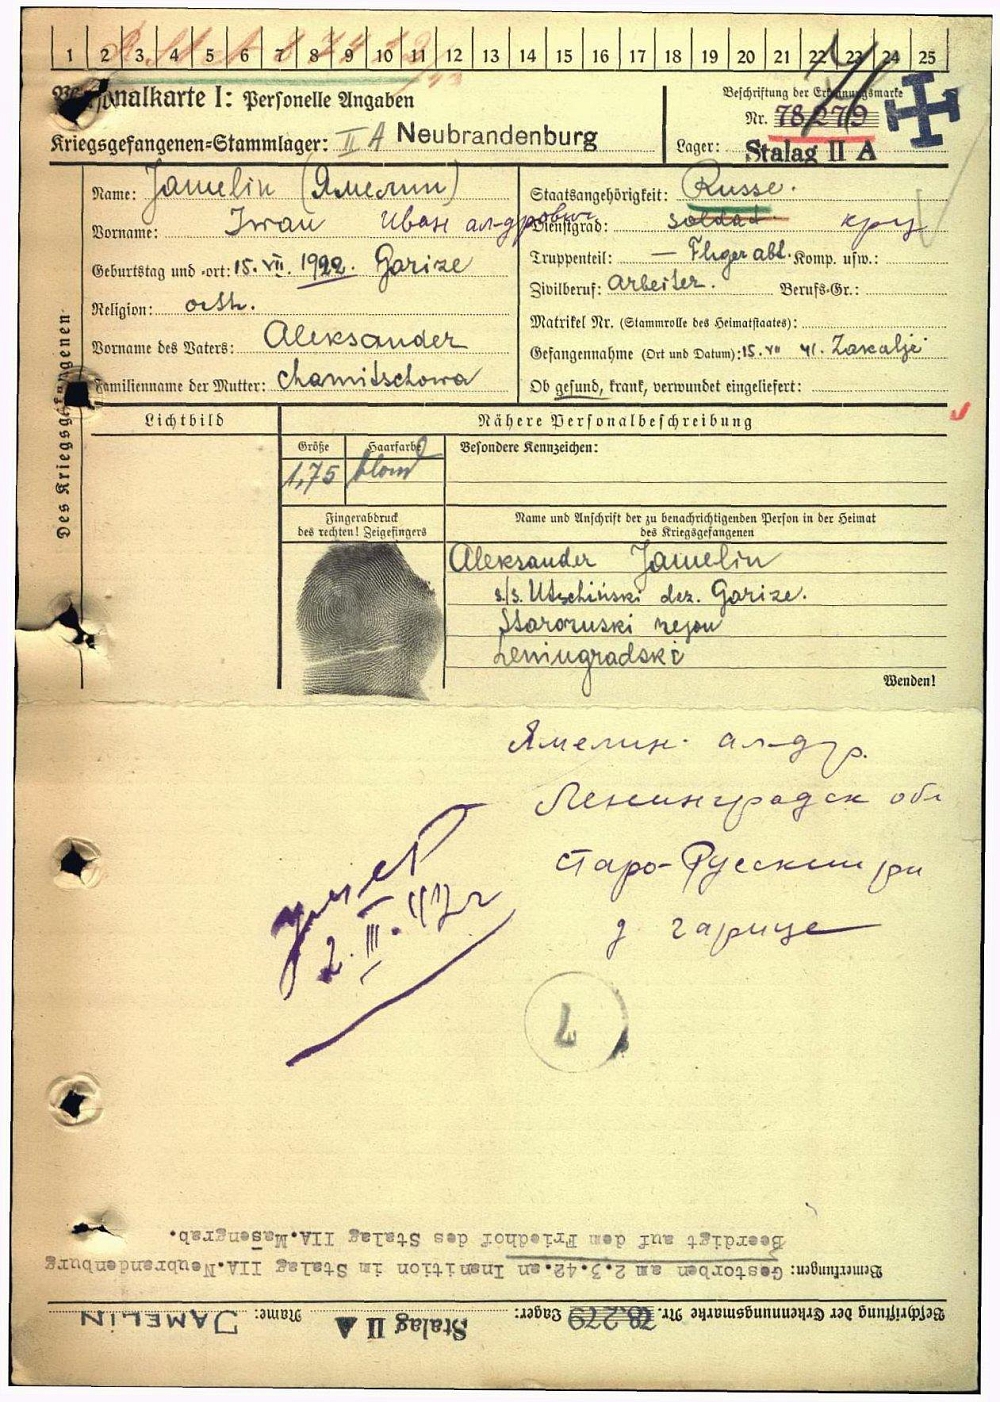 1 2 3 4 5 6 7 8 9 10 11 12 13 14 15 16 17 18 19 20 21 22 23 24 25
Personalkarte I: Personelle Angaben
Kriegsgefangenen-Stammlager: II A Neubrandenburg
Beschriftung der Erkennungsmarke
Nr. 78279
Lager: Stalag II A
Des Kriegsgefangenen
Name: Jamelin (Ямелин)
Vorname: Iwan Иван ал-дрович
Geburtstag und -ort: 15. VII. 1922. Garize
Religion: orth.
Vorname des Vaters: Aleksander
Familienname der Mutter: Chamitschowa
Staatsangehörigkeit: Russe.
Dienstgrad: soldat. кр
Truppenteil: — Fliger abt. Komp. usw.:
Zivilberuf: arbeiter. Berufs-Gr.:
Matrikel Nr. (Stammrolle des Heimatstaates):
Gefangennahme (Ort und Datum): 15. VII 41. Zakalje
Ob gesund, krank, verwundet eingeliefert:
Lichtbild
Nähere Personalbeschreibung
Größe Haarfarbe Besondere Kennzeichen:
1,75 blond
Fingerabdruck
des rechten! Zeigefingers
Name und Anschrift der zu benachrichtigenden Person in der Heimat
des Kriegsgefangenen
Aleksander Jamelin
s/s. Utschinski dez. Garize.
Staroruski rejon
Leningradski
Wenden!
Ямелин ал-др.
Ленинградск обл
Старо-Русский рн
д гарице
умер
2. III. 42 г
7
Beschriftung der Erkennungsmarke Nr. 78279 Lager: Stalag II A Name: JAMELIN
Bemerkungen: Gestorben am 2.3.42. an Inanition im Stalag IIA.Neubrandenburg
Beerdigt auf dem Friedhof des Stalag IIA.Masengrab.